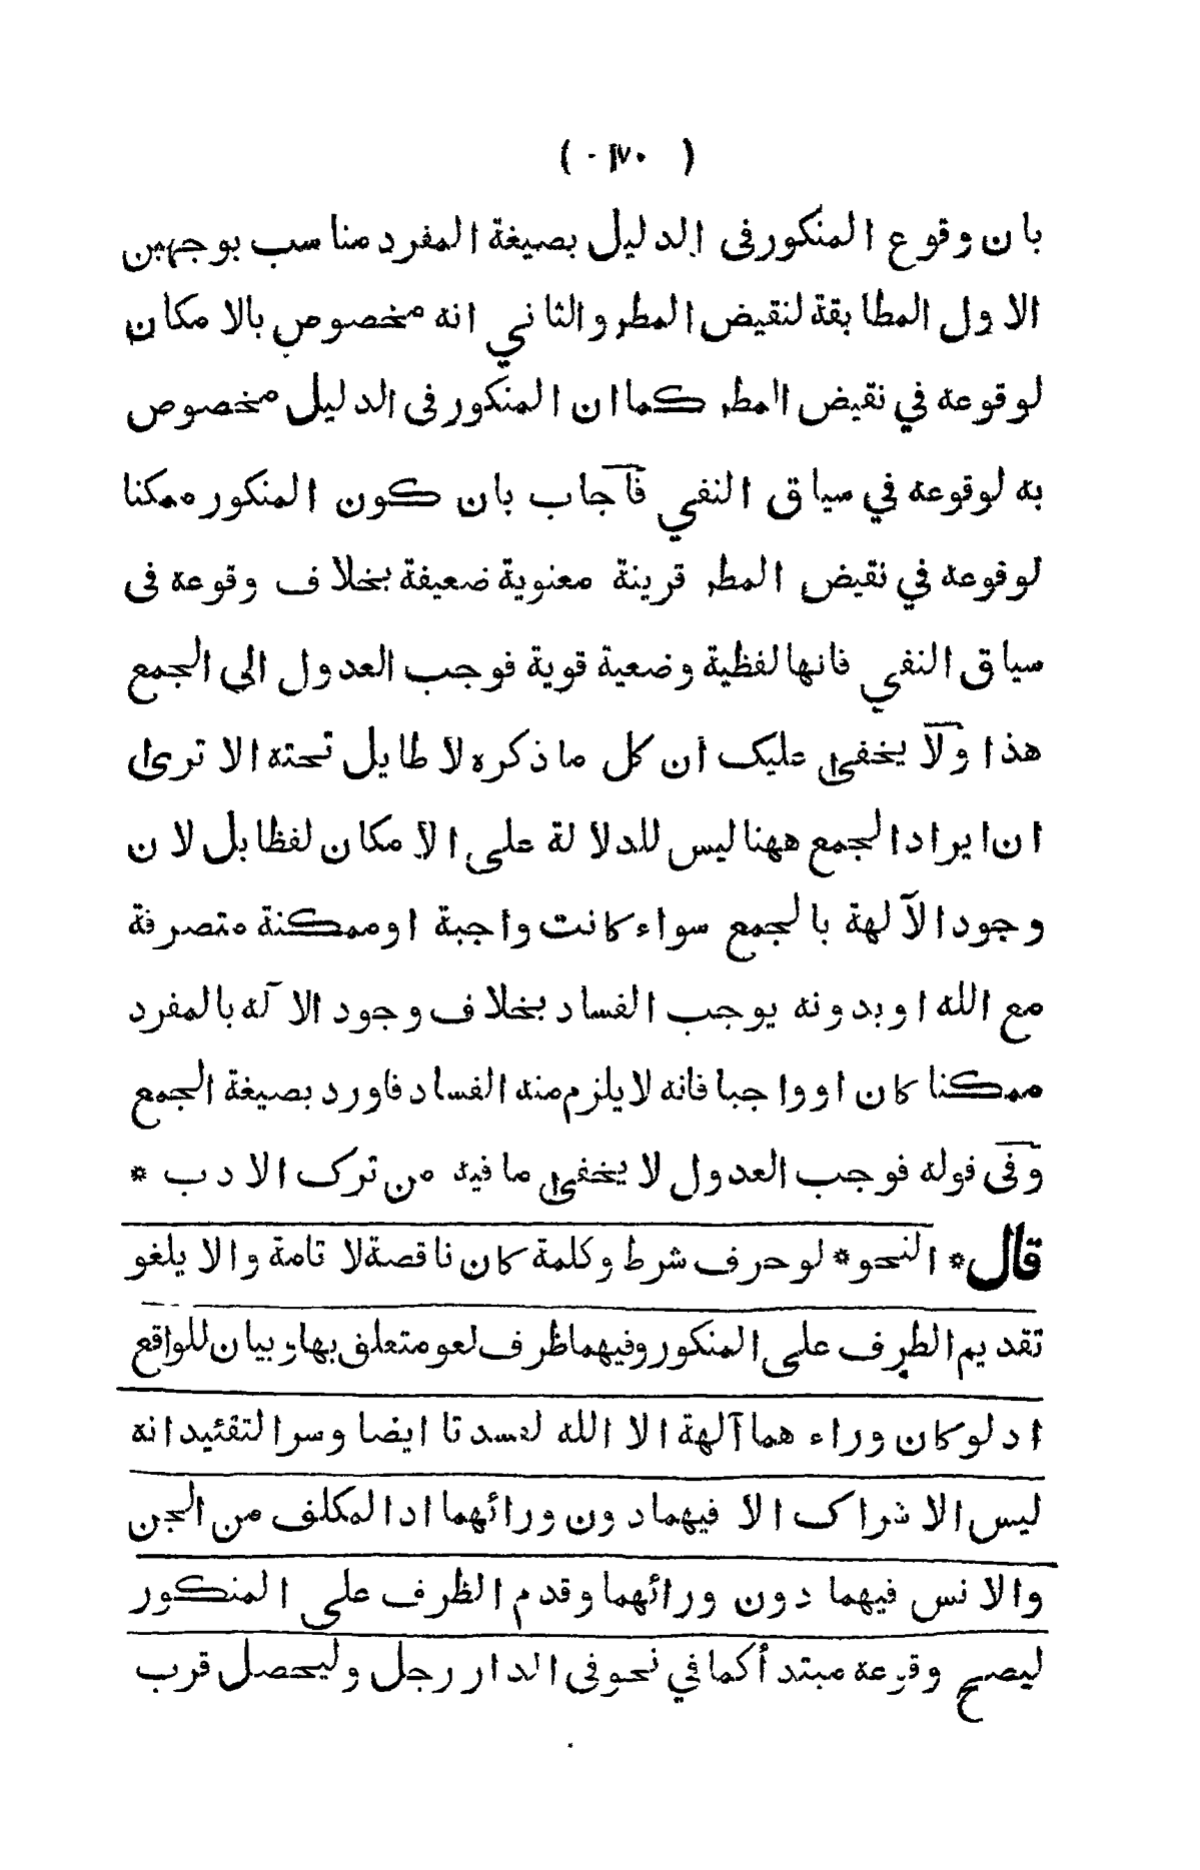 ( ١٧٠ )
بان وقوع المنكور فى الدليل بصيغة المفرد مناسب بوجهين
الاول المطابقة لنقيض المطر والثاني انه مخصوص بالامكان
لوقوعه في نقيض المطر كما ان المنكور فى الدليل مخصوص
به لوقوعه في سياق النفي فآجاب بان كون المنكور ممكنا
لوقوعه في نقيض المطر قرينة معنوية ضعيفة بخلاف وقوعه فى
سياق النفي فانها لفظية وضعية قوية فوجب العدول الى الجمع
هذا ولا يخفى عليك أن كل ما ذكره لا طايل تحته الا ترى
ان ايراد الجمع ههنا ليس للدلالة على الامكان لفظا بل لان
وجود الآلهة بالجمع سواء كانت واجبة او ممكنة متصرفة
مع الله او بدونه يوجب الفساد بخلاف وجود الآله بالمفرد
ممكنا كان او واجبا فانه لا يلزم منه الفساد فاورد بصيغة الجمع
وفى قوله فوجب العدول لا يخفى ما فيه من ترك الادب *
قال * النحو * لو حرف شرط وكلمة كان ناقصة لا تامة والا يلغو
تقديم الظرف على المنكور وفيهما ظرف لغو متعلق بها وبيان للواقع
اذ لو كان وراء هما آلهة الا الله لفسدتا ايضا وسر التقئيد انه
ليس الاشراك الا فيهما دون ورائهما اذ المكلف من الجن
والانس فيهما دون ورائهما وقدم الظرف على المنكور
ليصح وقوعه مبتدأ كما في نحو فى الدار رجل وليحصل قرب